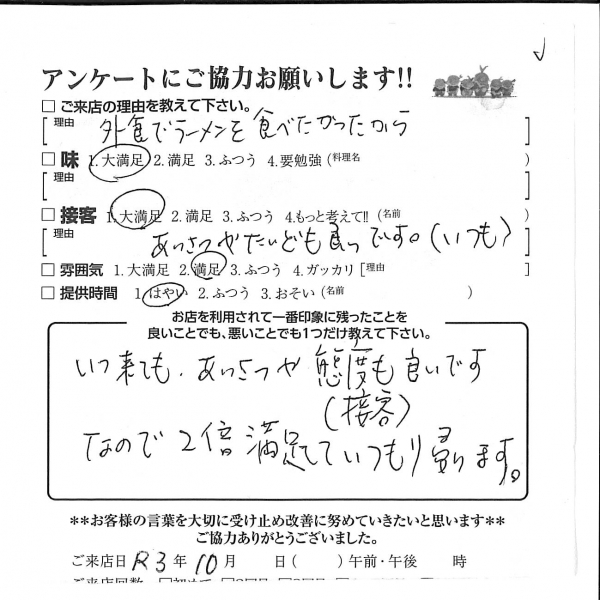 アンケートにご協力お願いします!!
□ ご来店の理由を教えて下さい。
[理由 外食でラーメンを食べたかったから ]
□ 味 1.大満足 2.満足 3.ふつう 4.要勉強 (料理名 )
[理由 ]
□ 接客 1.大満足 2.満足 3.ふつう 4.もっと考えて!! (名前 )
[理由 あいさつやたいども良いです。(いつも) ]
□ 雰囲気 1.大満足 2.満足 3.ふつう 4.ガッカリ [理由 ]
□ 提供時間 1.はやい 2.ふつう 3.おそい (名前 )
お店を利用されて一番印象に残ったことを
良いことでも、悪いことでも1つだけ教えて下さい。
いつ来ても、あいさつや態度も良いです
(接客)
なので2倍満足していつもり帰ります。
**お客様の言葉を大切に受け止め改善に努めていきたいと思います**
ご協力ありがとうございました。
ご来店日 R3年 10月 日( ) 午前・午後 時